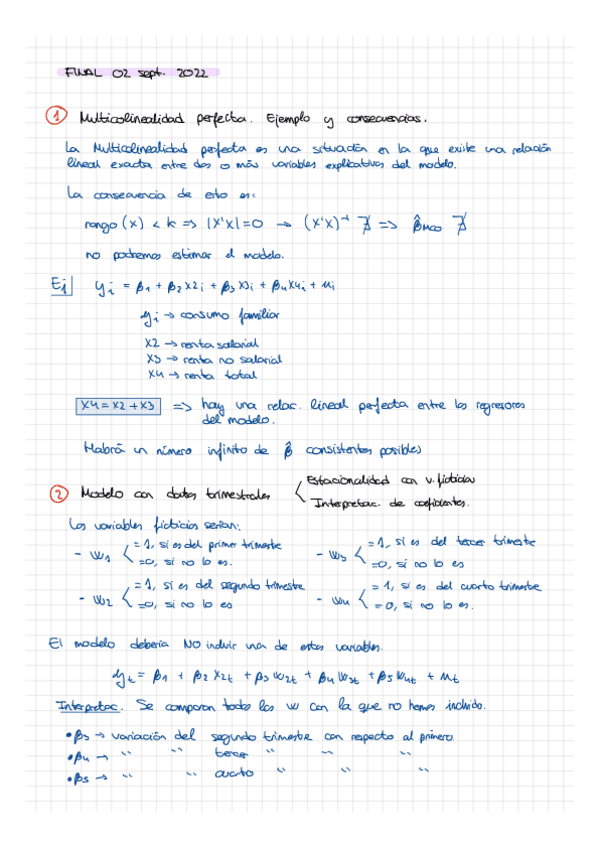 FINAL 02 sept. 2022
① Multicolinealidad perfecta. Ejemplo y consecuencias.
La Multicolinealidad perfecta es una situación en la que existe una relación
lineal exacta entre dos o más variables explicativas del modelo.
La consecuencia de esto es:
rango (x) < k => |X'X| = 0 → (X'X)⁻¹ ∄ => β̂MCO ∄
no podremos estimar el modelo.
Ej yi = β1 + β2 x2i + β3 x3i + β4 x4i + ui
yi → consumo familiar
X2 → renta salarial
X3 → renta no salarial
X4 → renta total
X4 = X2 + X3 => hay una relac. lineal perfecta entre los regresores
del modelo.
Habrá un número infinito de β̂ consistentes posibles
② Modelo con datos trimestrales < Estacionalidad con v. ficticias
Interpretac. de coeficientes.
Las variables ficticias serían:
- W1 < = 1, si es del primer trimestre
=0, si no lo es.
- W3 < = 1, si es del tercer trimestre
=0, si no lo es
- W2 < = 1, si es del segundo trimestre
=0, si no lo es
- W4 < = 1, si es del cuarto trimestre
=0, si no lo es.
El modelo debería NO incluir una de estas variables.
yt = β1 + β2 x2t + β3 w2t + β4 w3t + β5 w4t + ut
Interpretac. Se comparan todos los w con la que no hemos incluido.
• β3 → variación del segundo trimestre con respecto al primero.
• β4 → " " tercer " " "
• β5 → " " cuarto " " "